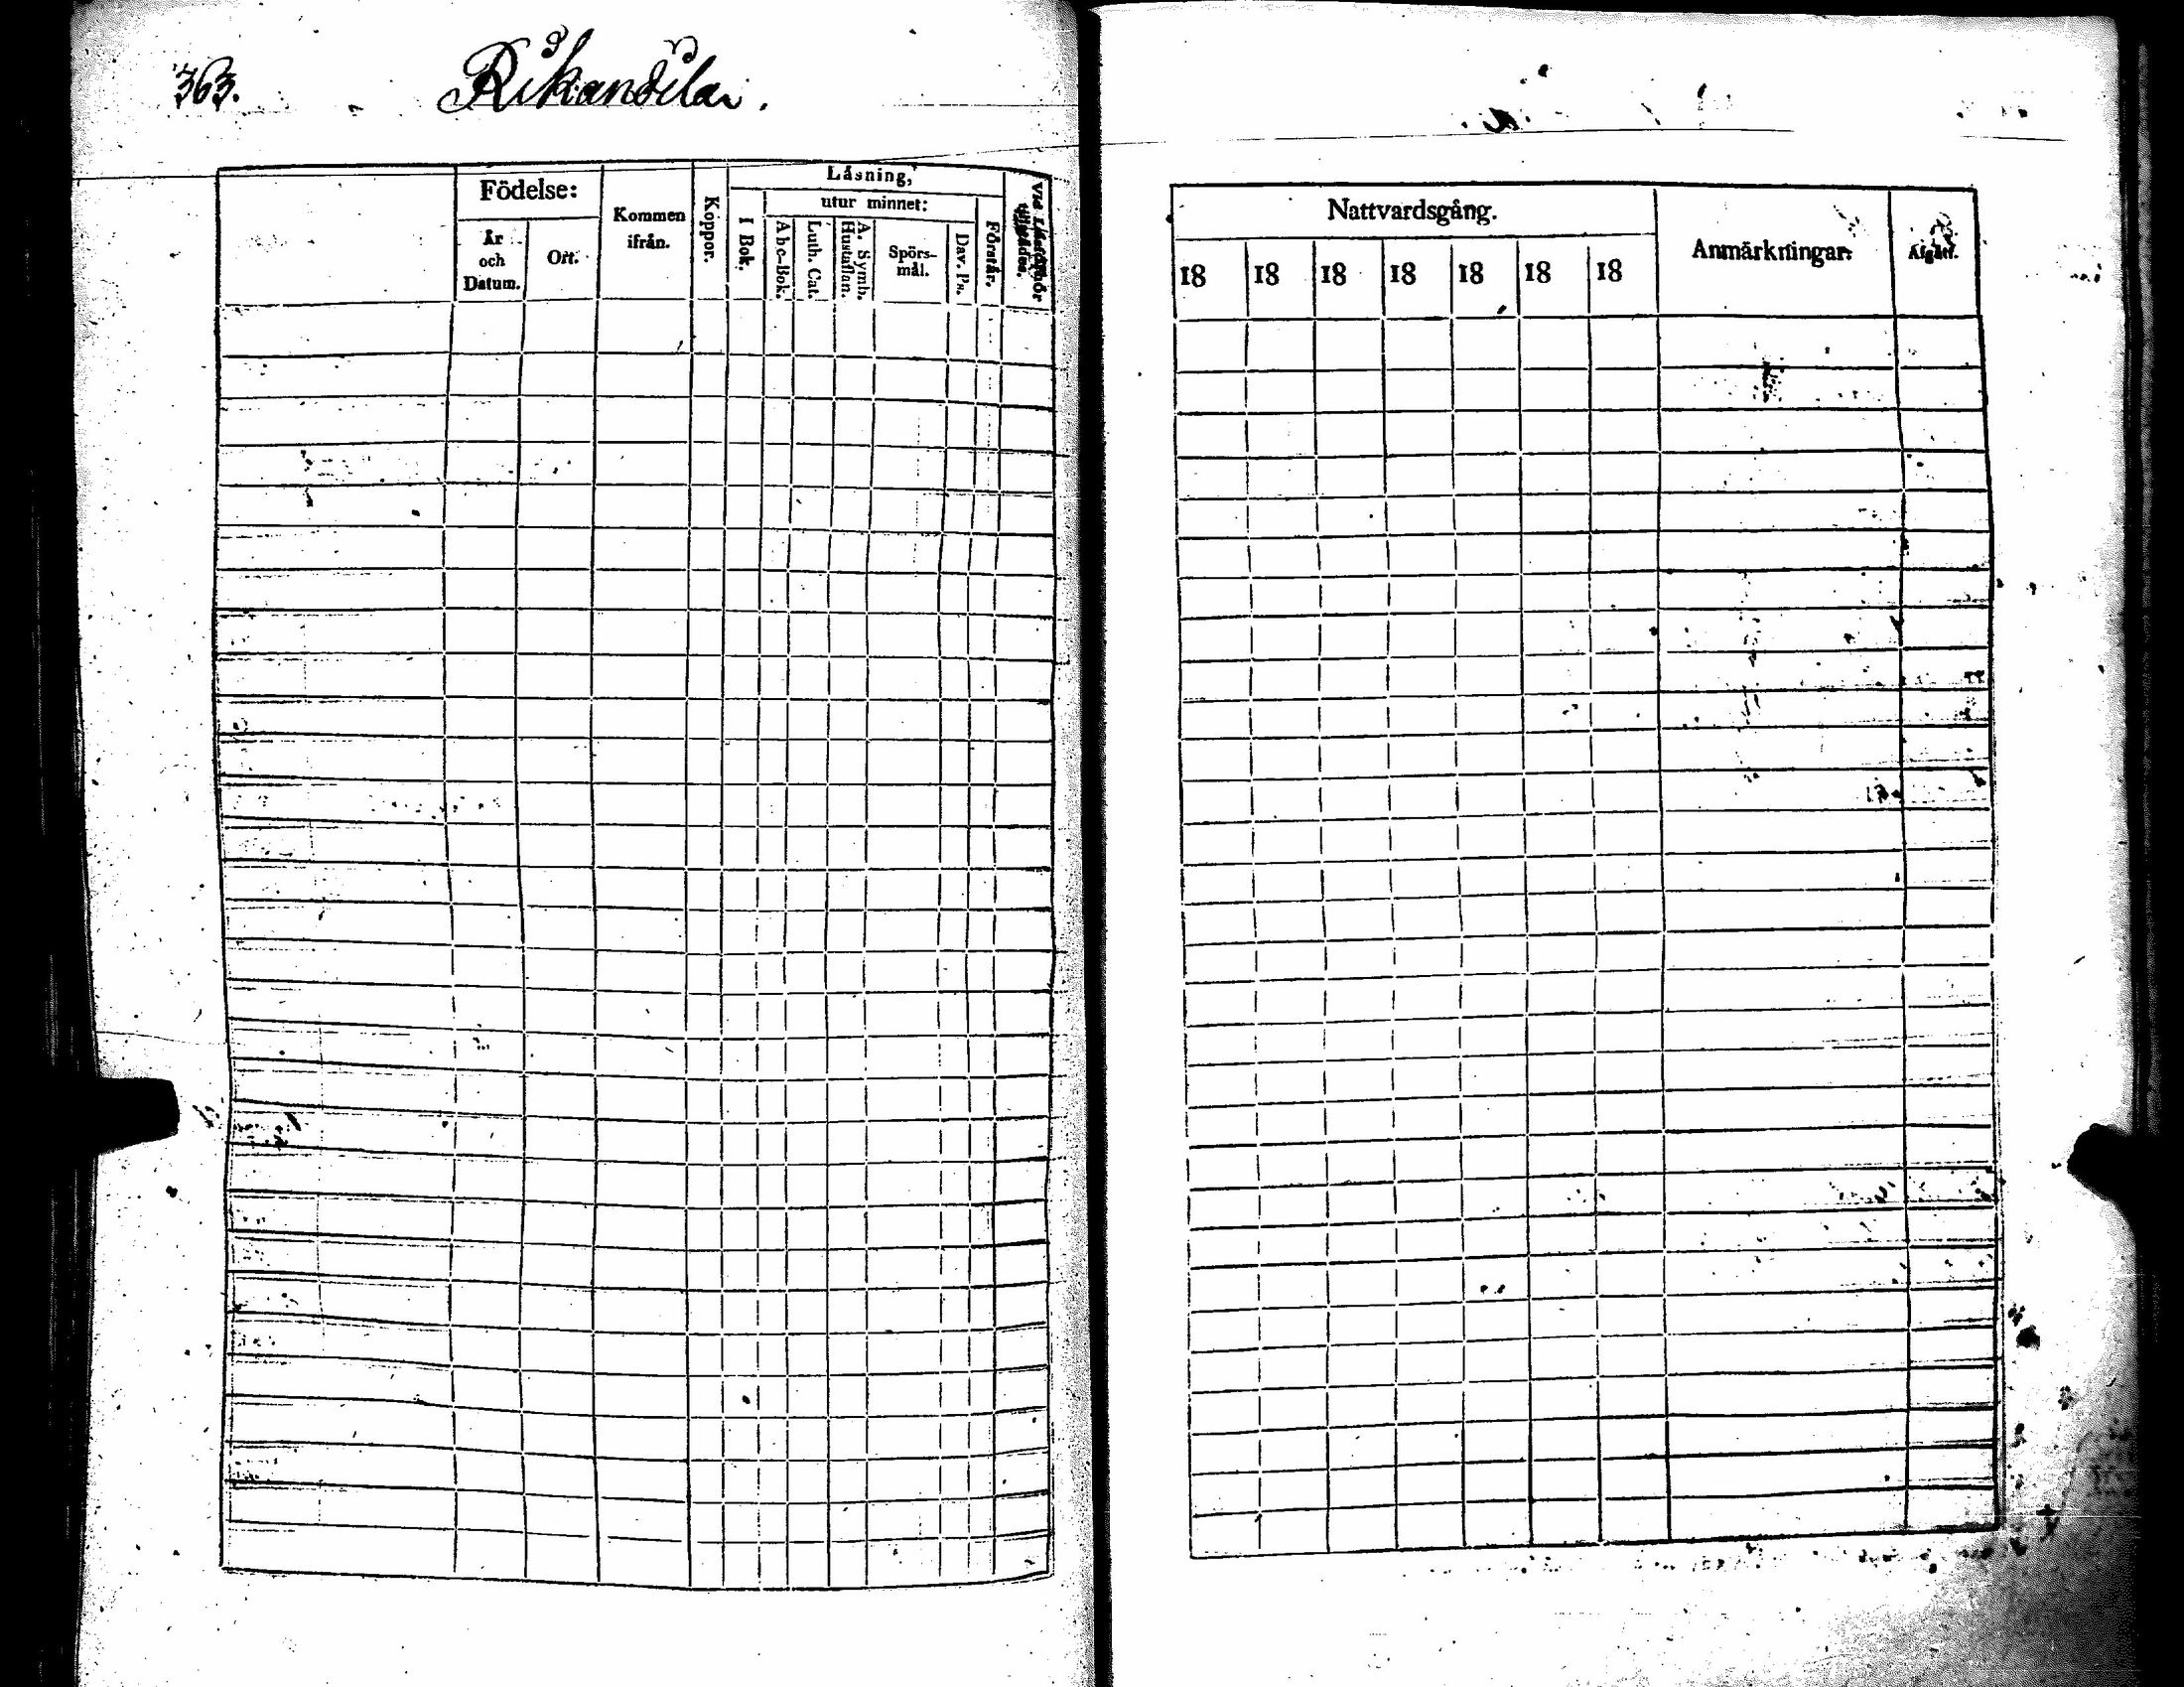 363.
Rikandila.
Födelse:
År och Datum.
Ort.
Kommen ifrån.
Koppor.
Läsning,
I Bok.
utur minnet:
Abc-Bok.
Luth. Cat.
A. Symb. Hustaflan.
Spörs-mål.
Dav. Ps.
Förstår.
Nattvardsgång.
18 18 18 18 18 18 18
Anmärkningar.
Afgått.